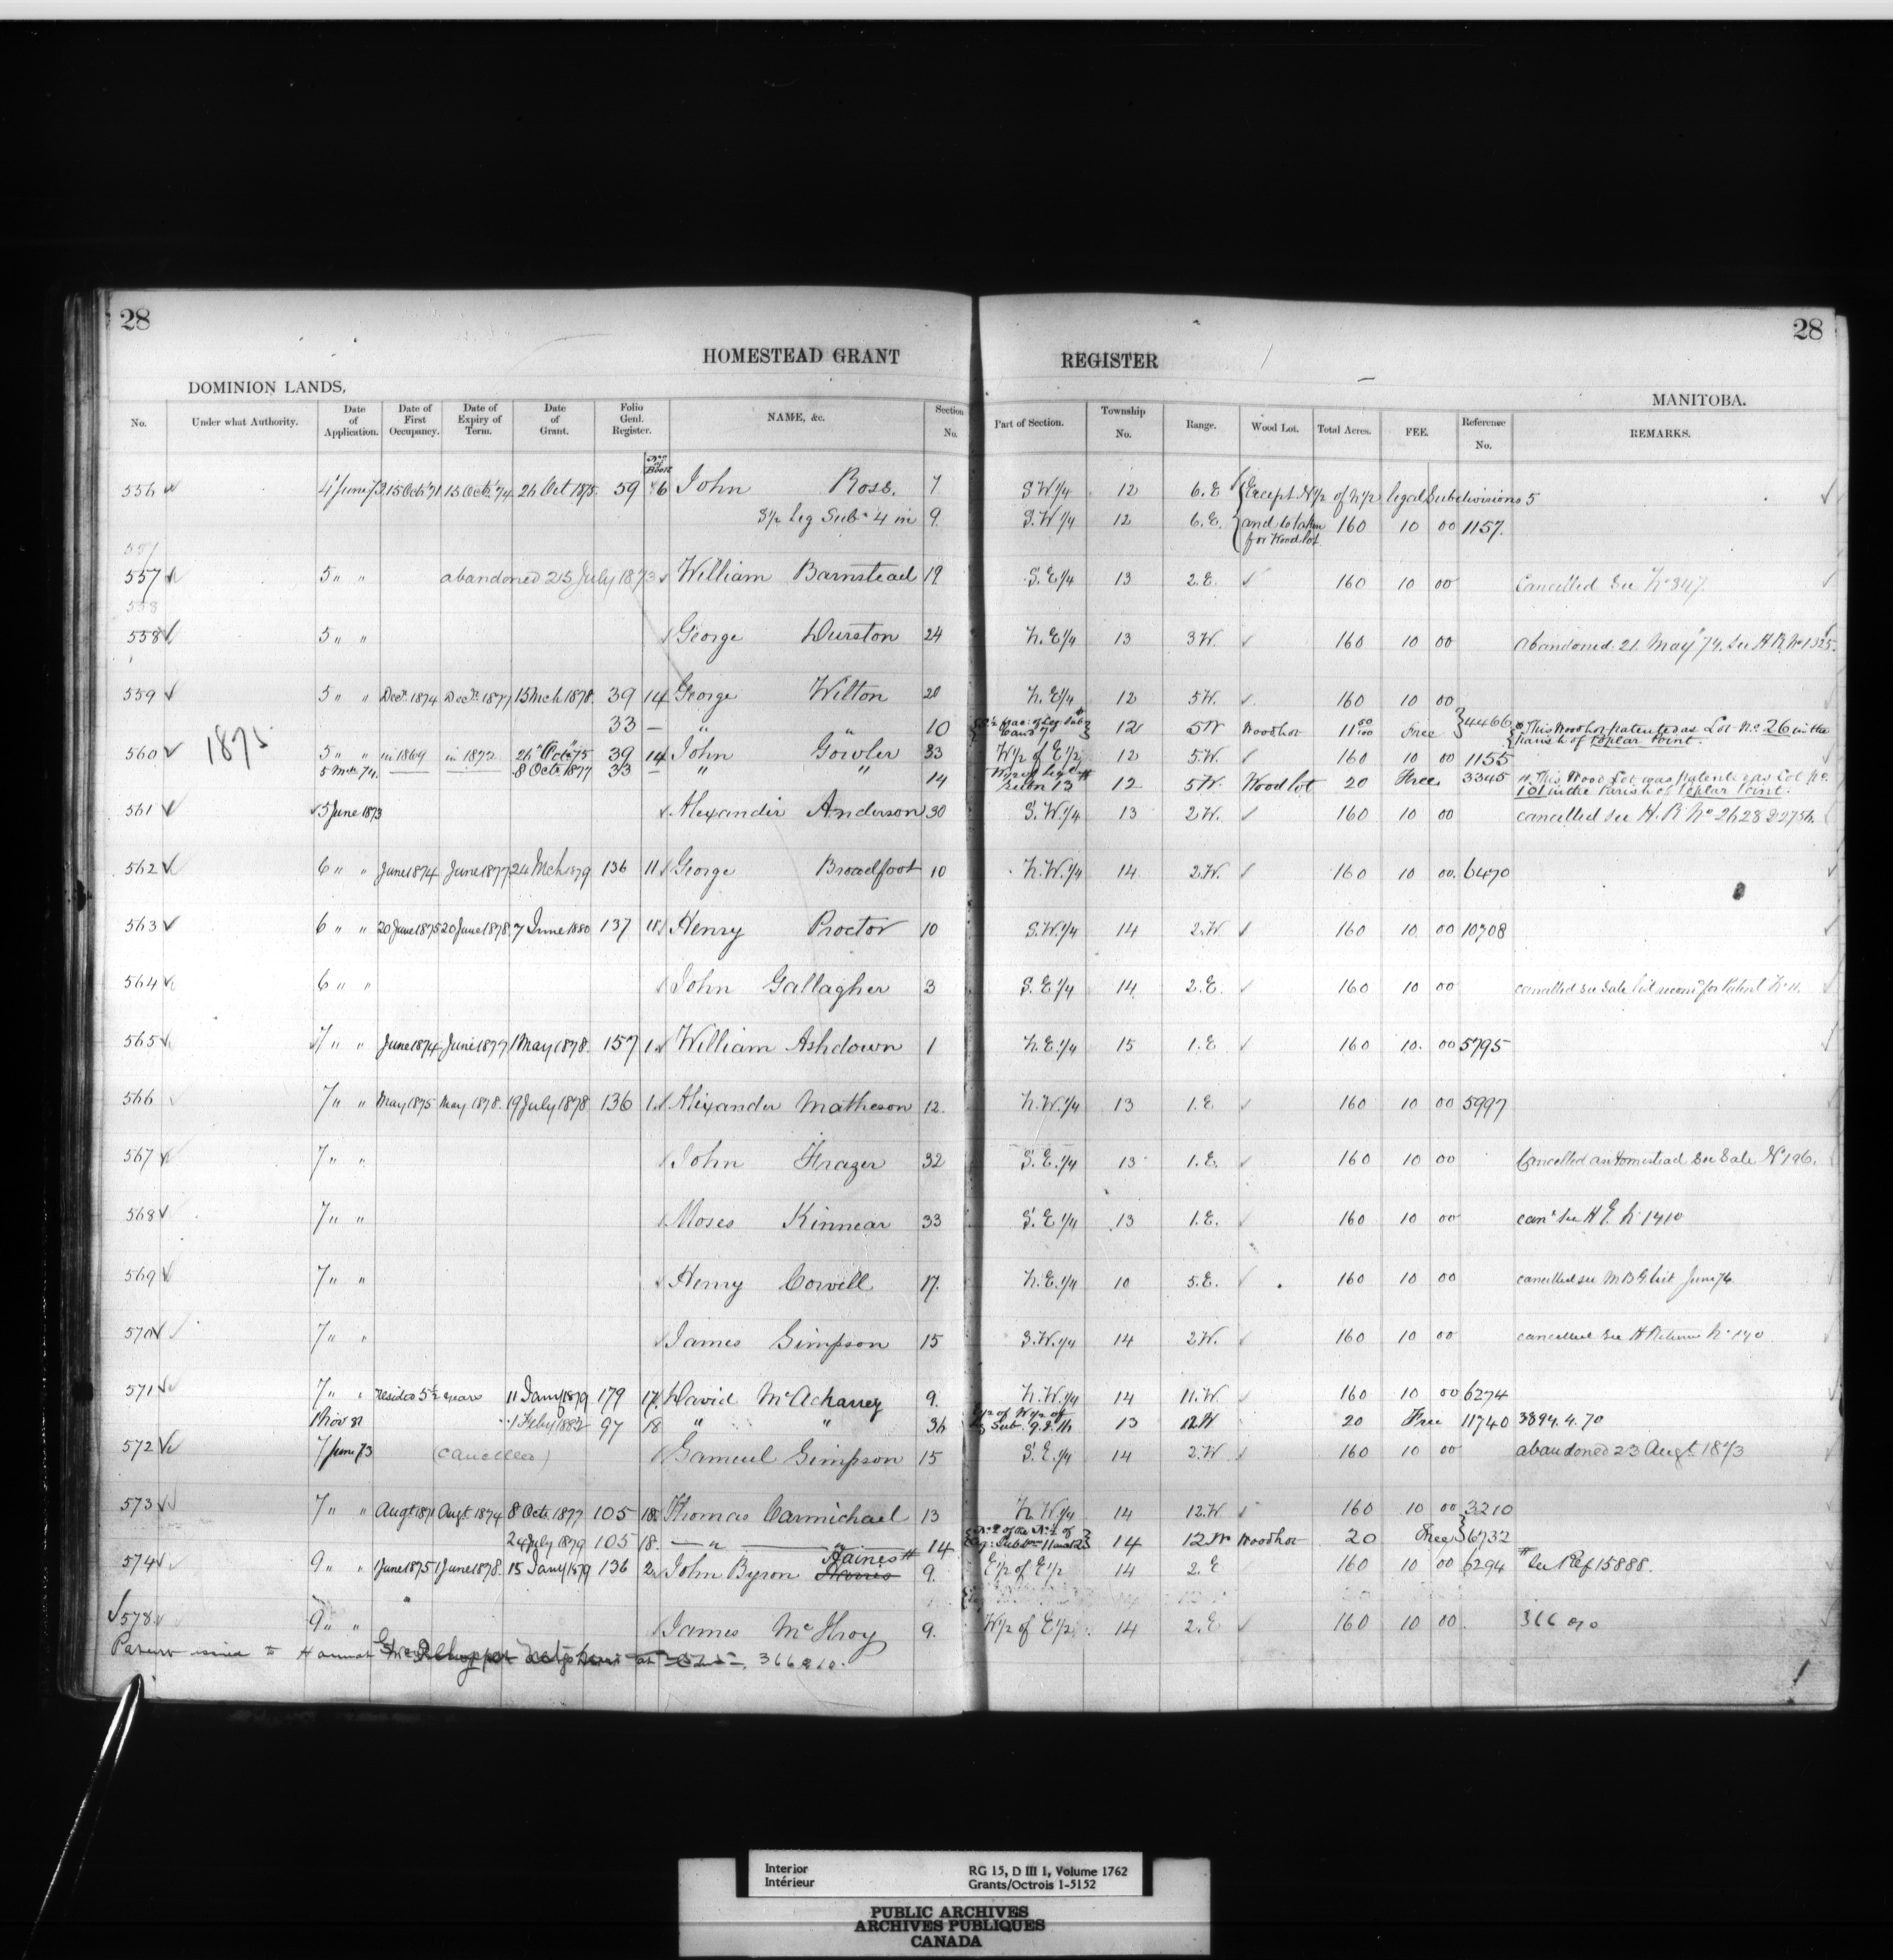 28
28
HOMESTEAD GRANT REGISTER
DOMINION LANDS,
MANITOBA.
No. Under what Authority. Date of Application. Date of First Occupancy. Date of Expiry of Term. Date of Grant. Folio Genl. Register. NAME, &c. Section No. Part of Section. Township No. Range. Wood Lot. Total Acres. FEE. Reference No. REMARKS.
No of Book
556 4 June 73 15 Octr 71 15 Octr 74 26 Oct 1875 59 6 John Ross. 7 S.W.1/4 12 6.E Except N1/2 of N1/2 legal Subdivisions 5
S1/2 Leg Subn 4 in 9 S.W.1/4 12 6.E. and to taken for Wood lot 160 10 00 1157.
557
557 5 " " abandoned 25 July 1873 William Barnstead 19 S.E.1/4 13 2.E. 160 10 00 Cancelled See No 347.
558
558 5 " " George Durston 24 N.E.1/4 13 3W. 160 10 00 Abandoned 21 May 74. See H.R. No 1325.
559 5 " " Decr 1874 Decr 1877 15 Mch 1878. 39 14 George Wilton 20 N.E.1/4 12 5W. 160 10 00
33 — " " 10 12 5W Woodlot 11 50/100 Free 4466 This Woodlot patented as Lot No. 26 in the Parish of Poplar Point.
1875
560 5 " " in 1869 in 1872 26 Octr 75 39 14 John Gowler 33 W1/2 of E1/2 12 5.W. 160 10 00 1155
5 Mch 74. 8 Octr 1877 33 — " " 14 12 5W. Wood lot 20 Free 3345 This Wood Lot was patented as Lot No. 101 in the Parish of Poplar Point.
561 5 June 1873 Alexander Anderson 30 S.W.1/4 13 2W. 160 10 00 cancelled see H.R. No 2628 & 2756.
562 6 " " June 1874 June 1877 24 Mch 1879 136 11 George Broadfoot 10 N.W.1/4 14 2W. 160 10 00. 6470
563 6 " " 20 June 1875 20 June 1878 7 June 1880 137 18 Henry Proctor 10 S.W.1/4 14 2.W. 160 10 00 10708
564 6 " " John Gallagher 3 S.E.1/4 14 2.E. 160 10 00 cancelled see Sale list recomd for Patent No 11.
565 7 " " June 1874 June 1877 1 May 1878. 157 1 William Ashdown 1 N.E.1/4 15 1.E 160 10. 00 5795
566 7 " " May 1875 May 1878. 19 July 1878 136 1 Alexander Matheson 12. N.W.1/4 13 1.E 160 10 00 5997
567 7 " " John Frazer 32 S.E.1/4 13 1.E. 160 10 00 Cancelled as Homestead See Sale No 196.
568 7 " " Moses Kinnear 33 S.E.1/4 13 1.E. 160 10 00 cand See H.E. No 1410
569 7 " " Henry Corvell 17. N.E.1/4 10 5.E. 160 10 00 cancelled see M.B.G. list June 74
570 7 " " James Simpson 15 S.W.1/4 14 2W. 160 10 00 cancelled See H Returns No 140
571 7 " " resides 5 1/2 years 11 Jany 1879 179 17 David McAchaney 9. N.W.1/4 14 11.W 160 10 00 6274
1 Nov 81 1 Feby 1882 97 18 " " 36 13 12W 20 Free 11740 3894.4.70
572 7 June 73 (Cancelled) Samuel Simpson 15 S.E.1/4 14 2.W. 160 10 00 abandoned 23 Augt. 1873
573 7 " " Augt 1871 Augt 1874 8 Octr 1877 105 18 Thomas Carmichael 13 N.W.1/4 14 12.W 160 10 00 3210
24 July 1879 105 18. — " — " 14 14 12W Woodlot 20 Free 6732
574 9 " " 1 June 1875 1 June 1878. 15 Jany 1879 136 2 John Byron Haines 9. E1/2 of E1/2 14 2.E 160 10 00 6294 See Ref 15888.
578 9 " " James McIlroy 9. W1/2 of E1/2 14 2.E 160 10 00. 366 070
Patent issued to Hannah 366010.
Interior RG 15, D III 1, Volume 1762
Intérieur Grants/Octrois 1-5152
PUBLIC ARCHIVES
ARCHIVES PUBLIQUES
CANADA